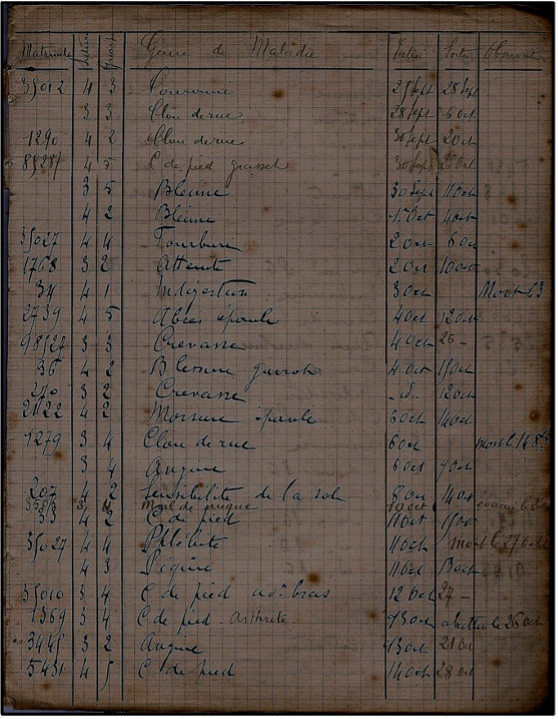 Matricule Genre de Maladie Entrée Sortie
35012 4 3 28 Sept
3 3 Clou de rue 28 Sept 6 Oct
1290 4 2 Clou de rue 30 Sept 2 Oct
4 5 C de pied 30 Sept
3 5 Bleime 30 Sept 11 Oct
4 2 Bleime 1 Oct 4 Oct
35027 4 4 Fourbure 2 Oct 6 Oct
1768 3 2 Atteinte 2 Oct 10 Oct
34 4 1 Indigestion 3 Oct Mort
2739 4 5 Abcès épaule 4 Oct 12 Oct
3 3 Crevasse 4 Oct 26 -
36 4 2 Blessure garrot 4 Oct 15 Oct
270 3 2 Crevasse - id - 12 Oct
2122 4 2 Morsure épaule 6 Oct 14 Oct
1279 3 4 Clou de rue 6 Oct mort le
3 4 Angine 6 Oct 9 Oct
207 4 2 Sensibilité de la sole 8 Oct 14 Oct
Mal de nuque 10 Oct
33 4 2 C de pied 11 Oct 15 Oct
35027 4 4 Phlébite 11 Oct mort le 27 Oct
4 3 Piqûre 11 Oct
35010 3 4 C de pied av. bras 12 Oct 27 -
1369 3 4 C de pied - Arthrite - 13 Oct abattu le 26 Oct
3445 3 2 Angine 13 Oct 21 Oct
5431 4 5 C de pied 14 Oct 28 Oct